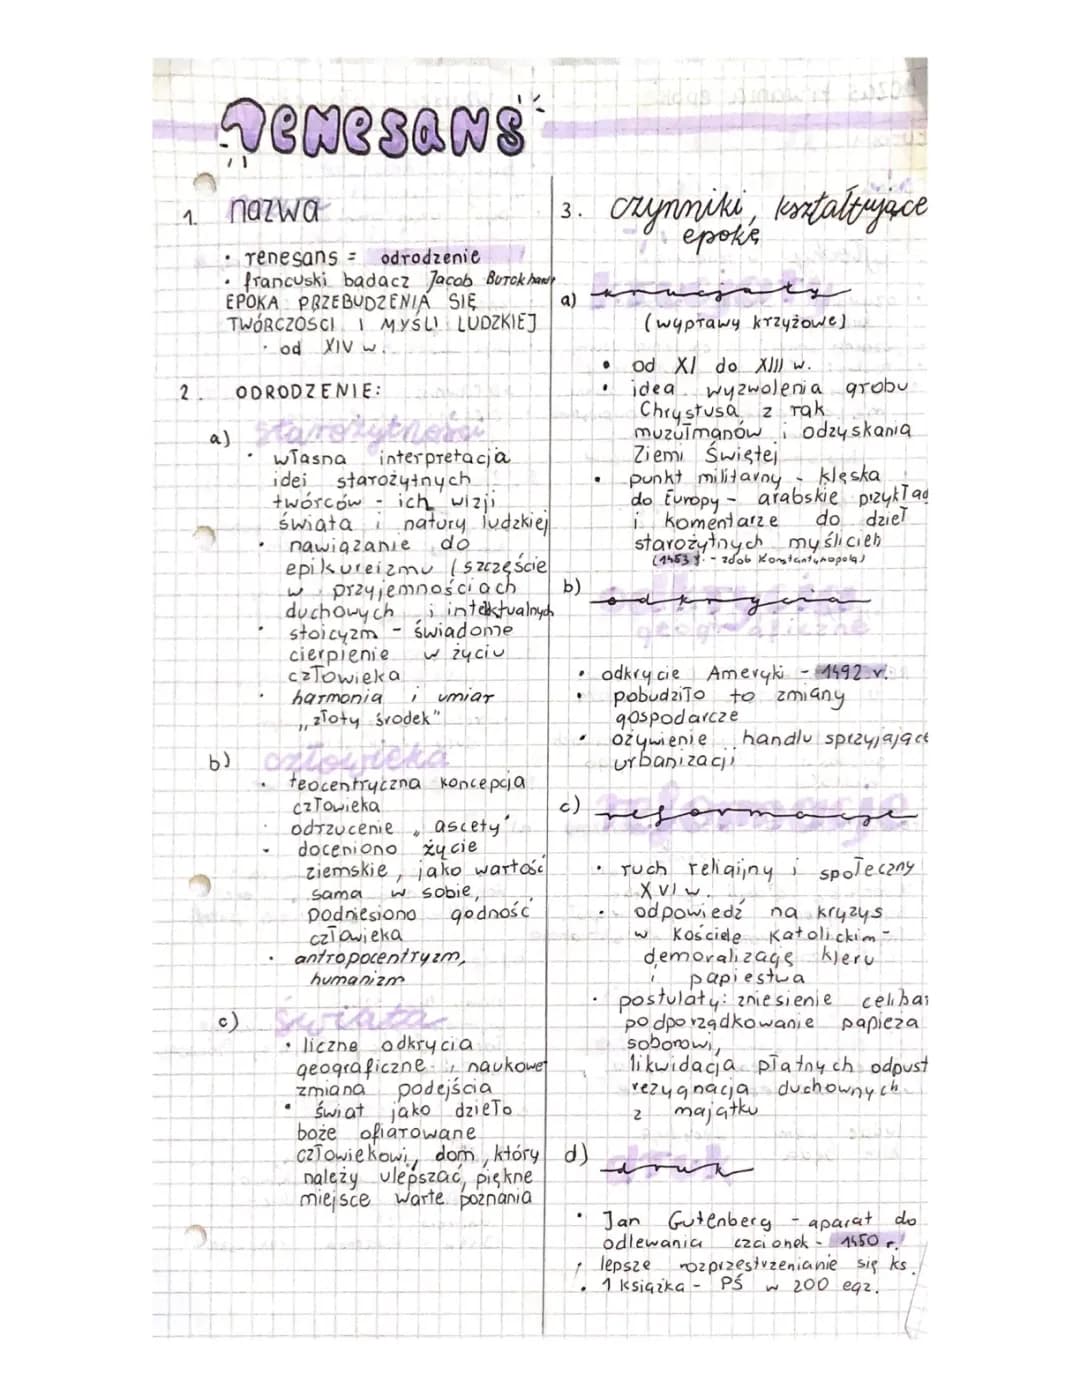 renesans
1. nazwa
• renesans = odrodzenie
• francuski badacz Jacob Burckhardt
EPOKA PRZEBUDZENIA SIĘ
TWÓRCZOŚCI I MYŚLI LUDZKIEJ
• od XIV w.
2. ODRODZENIE:
a) starożytności
• własna interpretacja
idei starożytnych
twórców - ich wizji
świata i natury ludzkiej
• nawiązanie do
epikureizmu (szczęście
w przyjemnościach
duchowych i intelektualnych
• stoicyzm - świadome
cierpienie w życiu
człowieka
• harmonia i umiar
„złoty środek"
b) człowieka
• teocentryczna koncepcja
człowieka
odrzucenie „ascety"
• doceniono życie
ziemskie, jako wartość
sama w sobie,
podniesiono godność
człowieka
• antropocentryzm,
humanizm
c) świata
• liczne odkrycia
geograficzne i naukowe
zmiana podejścia
• świat jako dzieło
boże ofiarowane
człowiekowi, dom, który
należy ulepszać, piękne
miejsce warte poznania
3. czynniki, kształtujące
epokę
a) krucjaty
(wyprawy krzyżowe)
• od XI do XIII w.
• idea wyzwolenia grobu
Chrystusa z rąk
muzułmanów i odzyskania
Ziemi Świętej
• punkt militarny - klęska
do Europy - arabskie przykład
i komentarze do dzieł
starożytnych myślicieli
(1453 r. - zdob Konstantynopola)
b) odkrycia
geograficzne
• odkrycie Ameryki - 1492 r.
• pobudziło to zmiany
gospodarcze
• ożywienie handlu sprzyjające
urbanizacji
c) reformacje
• ruch religijny i społeczny
XVI w.
• odpowiedź na kryzys
w Kościele Katolickim -
demoralizację kleru
i papiestwa
• postulaty: zniesienie celibat
podporządkowanie papieża
soborowi,
likwidacja płatnych odpust
rezygnacja duchownych
z majątku
d) druk
• Jan Gutenberg - aparat do
odlewania czcionek - 1450 r.
• lepsze rozprzestrzenianie się ks.
• 1 książka - PŚ w 200 egz.